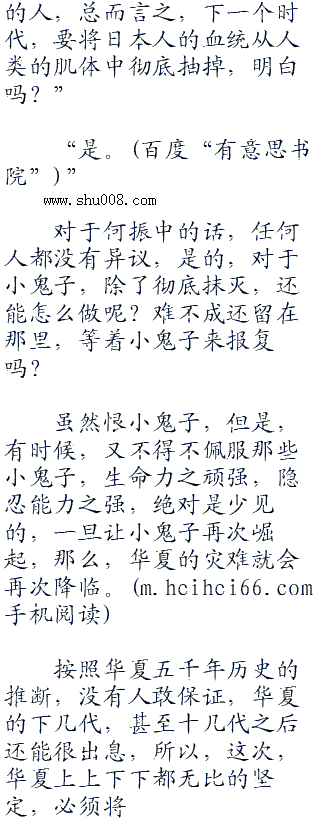 的人，总而言之，下一个时
代，要将日本人的血统从人
类的肌体中彻底抽掉，明白
吗？”
“是。(百度“有意思书
院”)”
www.shu008.com
对于何振中的话，任何
人都没有异议，是的，对于
小鬼子，除了彻底抹灭，还
能怎么做呢？难不成还留在
那里，等着小鬼子来报复
吗？
虽然恨小鬼子，但是，
有时候，又不得不佩服那些
小鬼子，生命力之顽强，隐
忍能力之强，绝对是少见
的，一旦让小鬼子再次崛
起，那么，华夏的灾难就会
再次降临。(m.hcihci66.com
手机阅读)
按照华夏五千年历史的
推断，没有人敢保证，华夏
的下几代，甚至十几代之后
还能很出息，所以，这次，
华夏上上下下都无比的坚
定，必须将